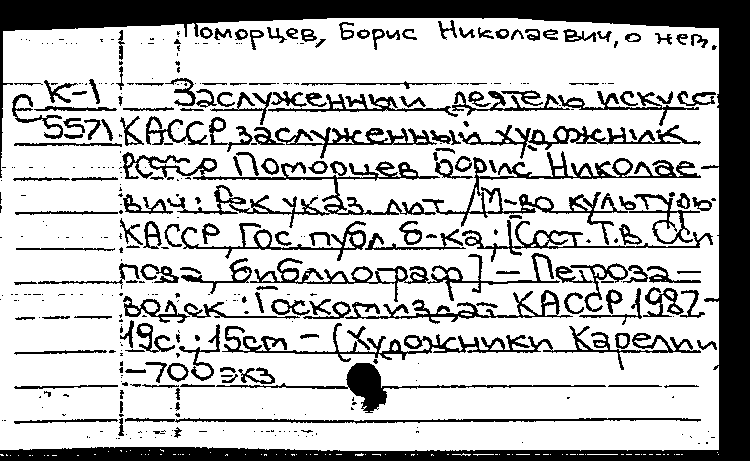 Поморцев, Борис Николаевич, о нем.
К-1
5571
Заслуженный деятель искусст
КАССР, заслуженный художник
РСФСР Поморцев Борис Николае-
вич: Рек. указ. лит. / М-во культуры
КАССР, Гос. публ. б-ка; [Сост. Т.В. Оси
пова, библиограф] — Петроза-
водск: Госкомиздат КАССР, 1987-
19с.; 15см — (Художники Карелии
-700 экз.